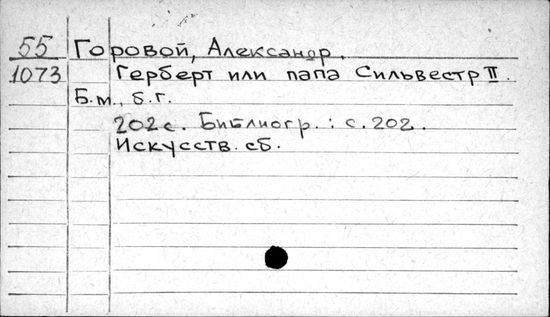 55 Горовой, Александр.
1073 Герберт или папа Сильвестр II.
Б.м., б.г.
202с. Библиогр.: с.202.
Искусств. сб.